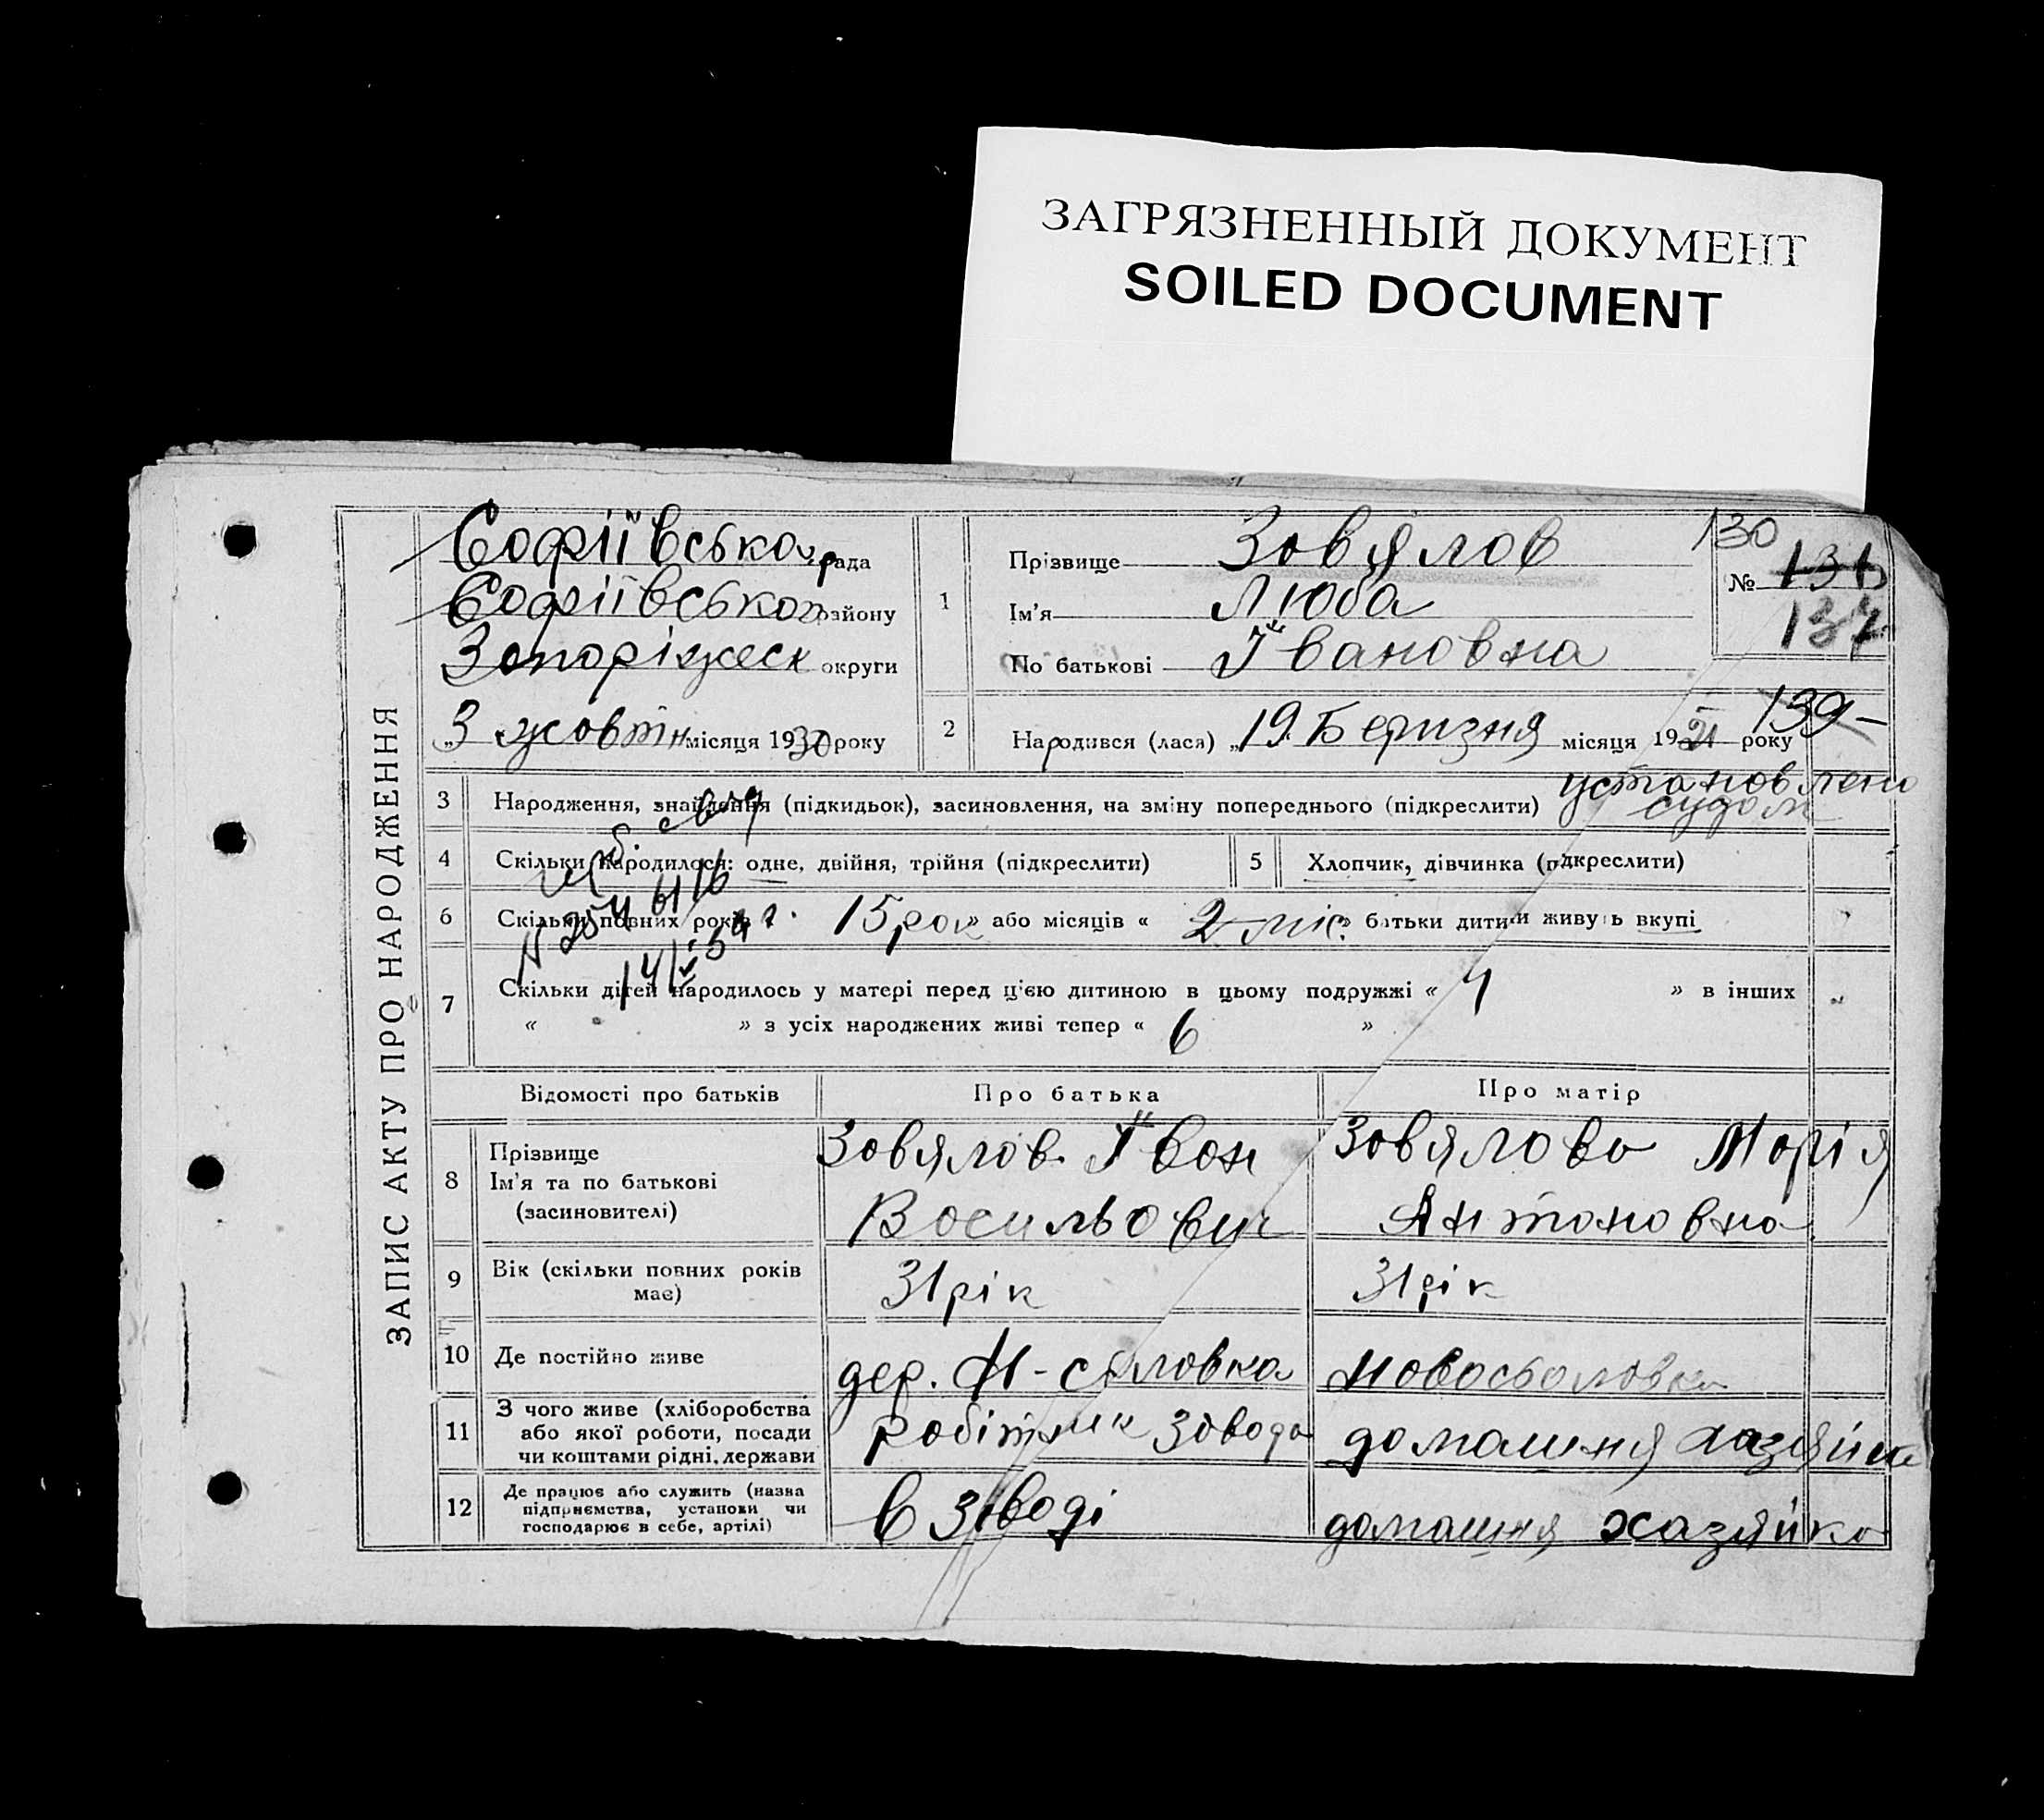 ЗАГРЯЗНЕННЫЙ ДОКУМЕНТ
SOILED DOCUMENT
ЗАПИС АКТУ ПРО НАРОДЖЕННЯ
Софіївська рада
Софіївсько району
Запоріжеск округи
„3 жовтня місяця 1930 року
1
Прізвище Зовялов
Ім'я Люба
По батькові Ївановна
130
№ 131
137
139-
2 Народився (лася) „19 Беризня місяця 1921 року
установлено
судом
3 Народження, знайдення (підкидьок), засиновлення, на зміну попереднього (підкреслити)
4 Скільки народилося: одне, двійня, трійня (підкреслити) 5 Хлопчик, дівчинка (підкреслити)
6 Скільки повних років 15 рок » або місяців « 2 міс. » батьки дитини живуть вкупі
7 Скільки дітей народилось у матері перед ц'єю дитиною в цьому подружжі « » в інших
« » з усіх народжених живі тепер « 6 »
Відомості про батьків Про батька Про матір
8 Прізвище
Ім'я та по батькові
(засиновителі)
Зовялов Їван
Восильович
Зовялово Морія
Антоновно
9 Вік (скільки повних років
має)
31 рік 31 рік
10 Де постійно живе дер. Н-соловка Новосоловка
11 З чого живе (хліборобства
або якої роботи, посади
чи коштами рідні, держави
робітник Зовода домашня хазяйка
12 Де працює або служить (назва
підприємства, установи чи
господарює в себе, артілі)
в Зоводі домашня хазяйко